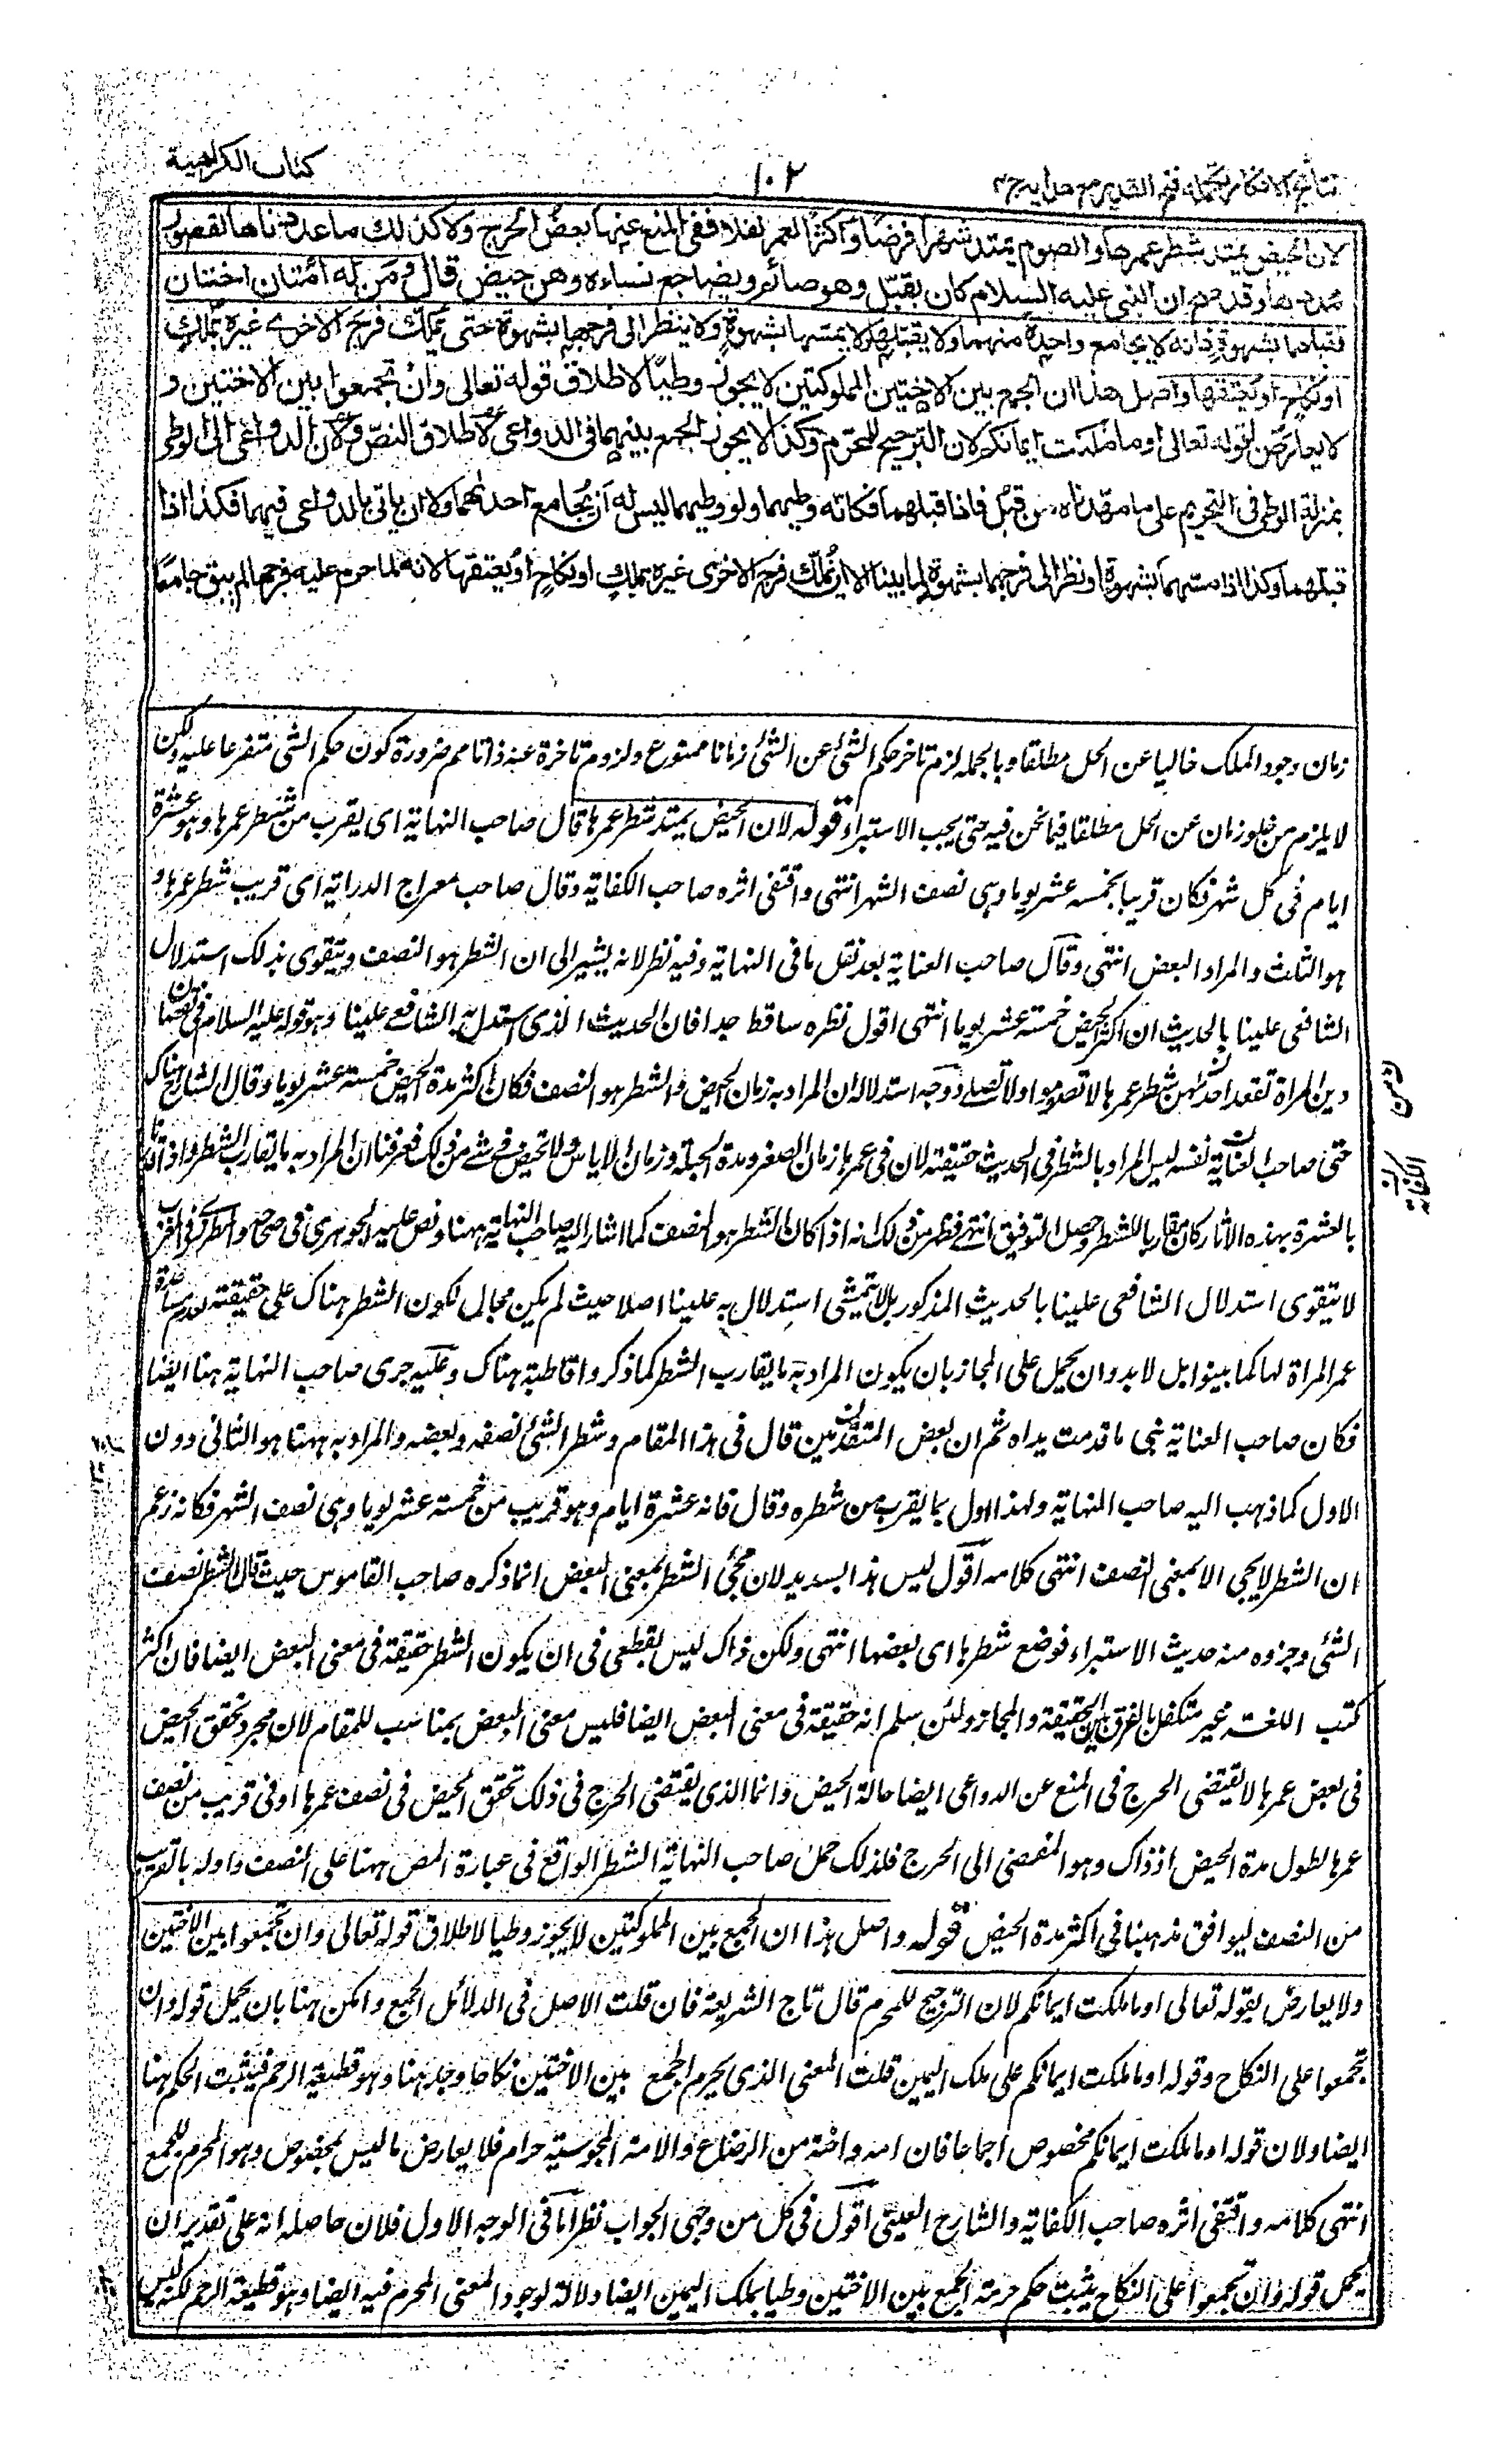 نتائج الافكار تكملہ فتح القدير مع هدايہ ج ٤
١٠٢
كتاب الكراهية
لان الحيض يمتد شطر عمرها والصوم يمتد شهرا فرضا واكثر العمر نفلا ففى المنع عنها بعض الحرج ولا كذلك ما عددناها لقصور
مددها وقد صح ان النبى عليه السلام كان يقبل وهو صائم ويضاجع نساءه وهن حيض قال ومن له امتان اختان
فقبلهما بشهوة فانه لا يجامع واحدة منهما ولا يقبلها ولا يمسها بشهوة ولا ينظر الى فرجها بشهوة حتى يملك فرج الاخرى غيره بملك
او نكاح او يعتقها واصل هذا ان الجمع بين الاختين المملوكتين لا يجوز وطيا لاطلاق قوله تعالى وان تجمعوا بين الاختين و
لا يعارض لقوله تعالى او ما ملكت ايمانكم لان الترجيح للمحرم وكذا لا يجوز الجمع بينهما فى الدواعى لاطلاق النص ولان الدواعى الى الوطى
بمنزلة الوطى فى التحريم على ما مهدناه من قبل فاذا قبلهما فكانه وطيهما ولو وطيهما ليس له ان يجامع احدهما ولا ان ياتى بالدواعى فيهما فكذا اذا
قبلهما وكذا اذا مسهما بشهوة او نظر الى فرجهما بشهوة لما بينا الا ان يملك فرج الاخرى غيره بملك او نكاح او يعتقها لانه لما حرم عليه فرجها لم يبق جامعا
زمان وجود الملك خاليا عن الحل مطلقا وبالجملة لزم تاخر حكم الشئ عن الشئ زمانا ممنوع ولزوم تاخره عنه ذاتا مم ضرورة كون حكم الشئ متفرعا عليه ولكن
لا يلزم من خلو زمان عن الحل مطلقا فيما نحن فيه حتى يجب الاستبراء قوله لان الحيض يمتد شطر عمرها قال صاحب النهاية اى يقرب من شطر عمرها وهو عشرة
ايام فى كل شهر فكان قريبا بخمسة عشر يوما وهى نصف الشهر انتهى واقتفى اثره صاحب الكفاية وقال صاحب معراج الدراية اى قريب شطر عمرها و
هو الثلث والمراد البعض انتهى وقال صاحب العناية بعد نقل ما فى النهاية وفيه نظر لانه يشير الى ان الشطر هو النصف ويتقوى بذلك استدلال
الشافعى علينا بالحديث ان اكثر الحيض خمسة عشر يوما انتهى اقول نظره ساقط جدا فان الحديث الذى استدل به الشافعى علينا وهو قوله عليه السلام فى نقصان
دين المراة تقعد احداهن شطر عمرها لا تصوم ولا تصلى ووجه استدلاله ان المراد به زمان الحيض والشطر هو النصف فكان اكثر مدة الحيض خمسة عشر يوما وقال الشارح هناك
حتى صاحب العناية نفسه ليس المراد بالشطر فى الحديث حقيقته لان فى عمرها زمان الصغر ومدة الحبل وزمان الاياس ولا تحيض فى شئ من ذلك فعرفنا ان المراد به ما يقارب الشطر واذا قدرنا
بالعشرة بهذه الاثار كان مقاربا للشطر وحصل التوفيق انتهى فظهر من ذلك انه اذا كان الشطر هو النصف كما اشار اليه صاحب النهاية ههنا ونص عليه الجوهرى فى صحاحه والمطرزى فى المغرب
لا يتقوى استدلال الشافعى علينا بالحديث المذكور بل لا يتمشى استدلال به علينا اصلا حيث لم يكن مجال لكون الشطر هناك على حقيقته لعدم مساعدة
عمر المراة لها كما بينوا بل لا بد وان يحمل على المجاز بان يكون المراد به ما يقارب الشطر كما ذكروا قاطبة هناك وعليه جرى صاحب النهاية هنا ايضا
فكان صاحب العناية نسى ما قدمت يداه ثم ان بعض المتقدمين قال فى هذا المقام وشطر الشئ نصفه وبعضه والمراد به ههنا هو الثانى دون
الاول كما ذهب اليه صاحب النهاية ولهذا اول بما يقرب من شطره وقال فانه عشرة ايام وهو قريب من خمسة عشر يوما وهى نصف الشهر فكانه زعم
ان الشطر لا يجى الا بمعنى النصف انتهى كلامه اقول ليس هذا بسديد لان مجئ الشطر بمعنى البعض انما ذكره صاحب القاموس حيث قال الشطر نصف
الشئ وجزوه منه حديث الاستبراء فوضع شطرها اى بعضها انتهى ولكن ذاك ليس بقطعى فى ان يكون الشطر حقيقة فى معنى البعض ايضا فان اكثر
كتب اللغة غير متكفل بالفرق بين الحقيقة والمجاز ولئن سلم انه حقيقة فى معنى البعض ايضا فليس معنى البعض بمناسب للمقام لان مجرد تحقق الحيض
فى بعض عمرها لا يقتضى الحرج فى المنع عن الدواعى ايضا حالة الحيض وانما الذى يقتضى الحرج فى ذلك تحقق الحيض فى نصف عمرها او فى قريب من نصف
عمرها لطول مدة الحيض اذ ذاك وهو المفضى الى الحرج فلذلك حمل صاحب النهاية الشطر الواقع فى عبارة المص ههنا على النصف واوله بالقريب
من النصف ليوافق مذهبنا فى اكثر مدة الحيض قوله واصل هذا ان الجمع بين المملوكتين لا يجوز وطيا لاطلاق قوله تعالى وان تجمعوا بين الاختين
ولا يعارض بقوله تعالى او ما ملكت ايمانكم لان الترجيح للمحرم قال تاج الشريعة فان قلت الاصل فى الدلائل الجمع وامكن هنا بان يحمل قوله وان
تجمعوا على النكاح وقوله او ما ملكت ايمانكم على ملك اليمين قلت المعنى الذى يحرم الجمع بين الاختين نكاحا وجد هنا وهو قطيعة الرحم فيثبت الحكم هنا
ايضا ولان قوله او ما ملكت ايمانكم مخصوص اجماعا فان امه واخته من الرضاع والامة المجوسية حرام فلا يعارض ما ليس بمخصوص وهو المحرم للجمع
انتهى كلامه واقتفى اثره صاحب الكفاية والشارح العينى اقول فى كل من وجهى الجواب نظر اما فى الوجه الاول فلان حاصله انه على تقدير ان
يحمل قوله وان تجمعوا على النكاح يثبت حكم حرمة الجمع بين الاختين وطيا بملك اليمين ايضا دلالة لوجود المعنى المحرم فيه ايضا وهو قطيعة الرحم لكنه ليس